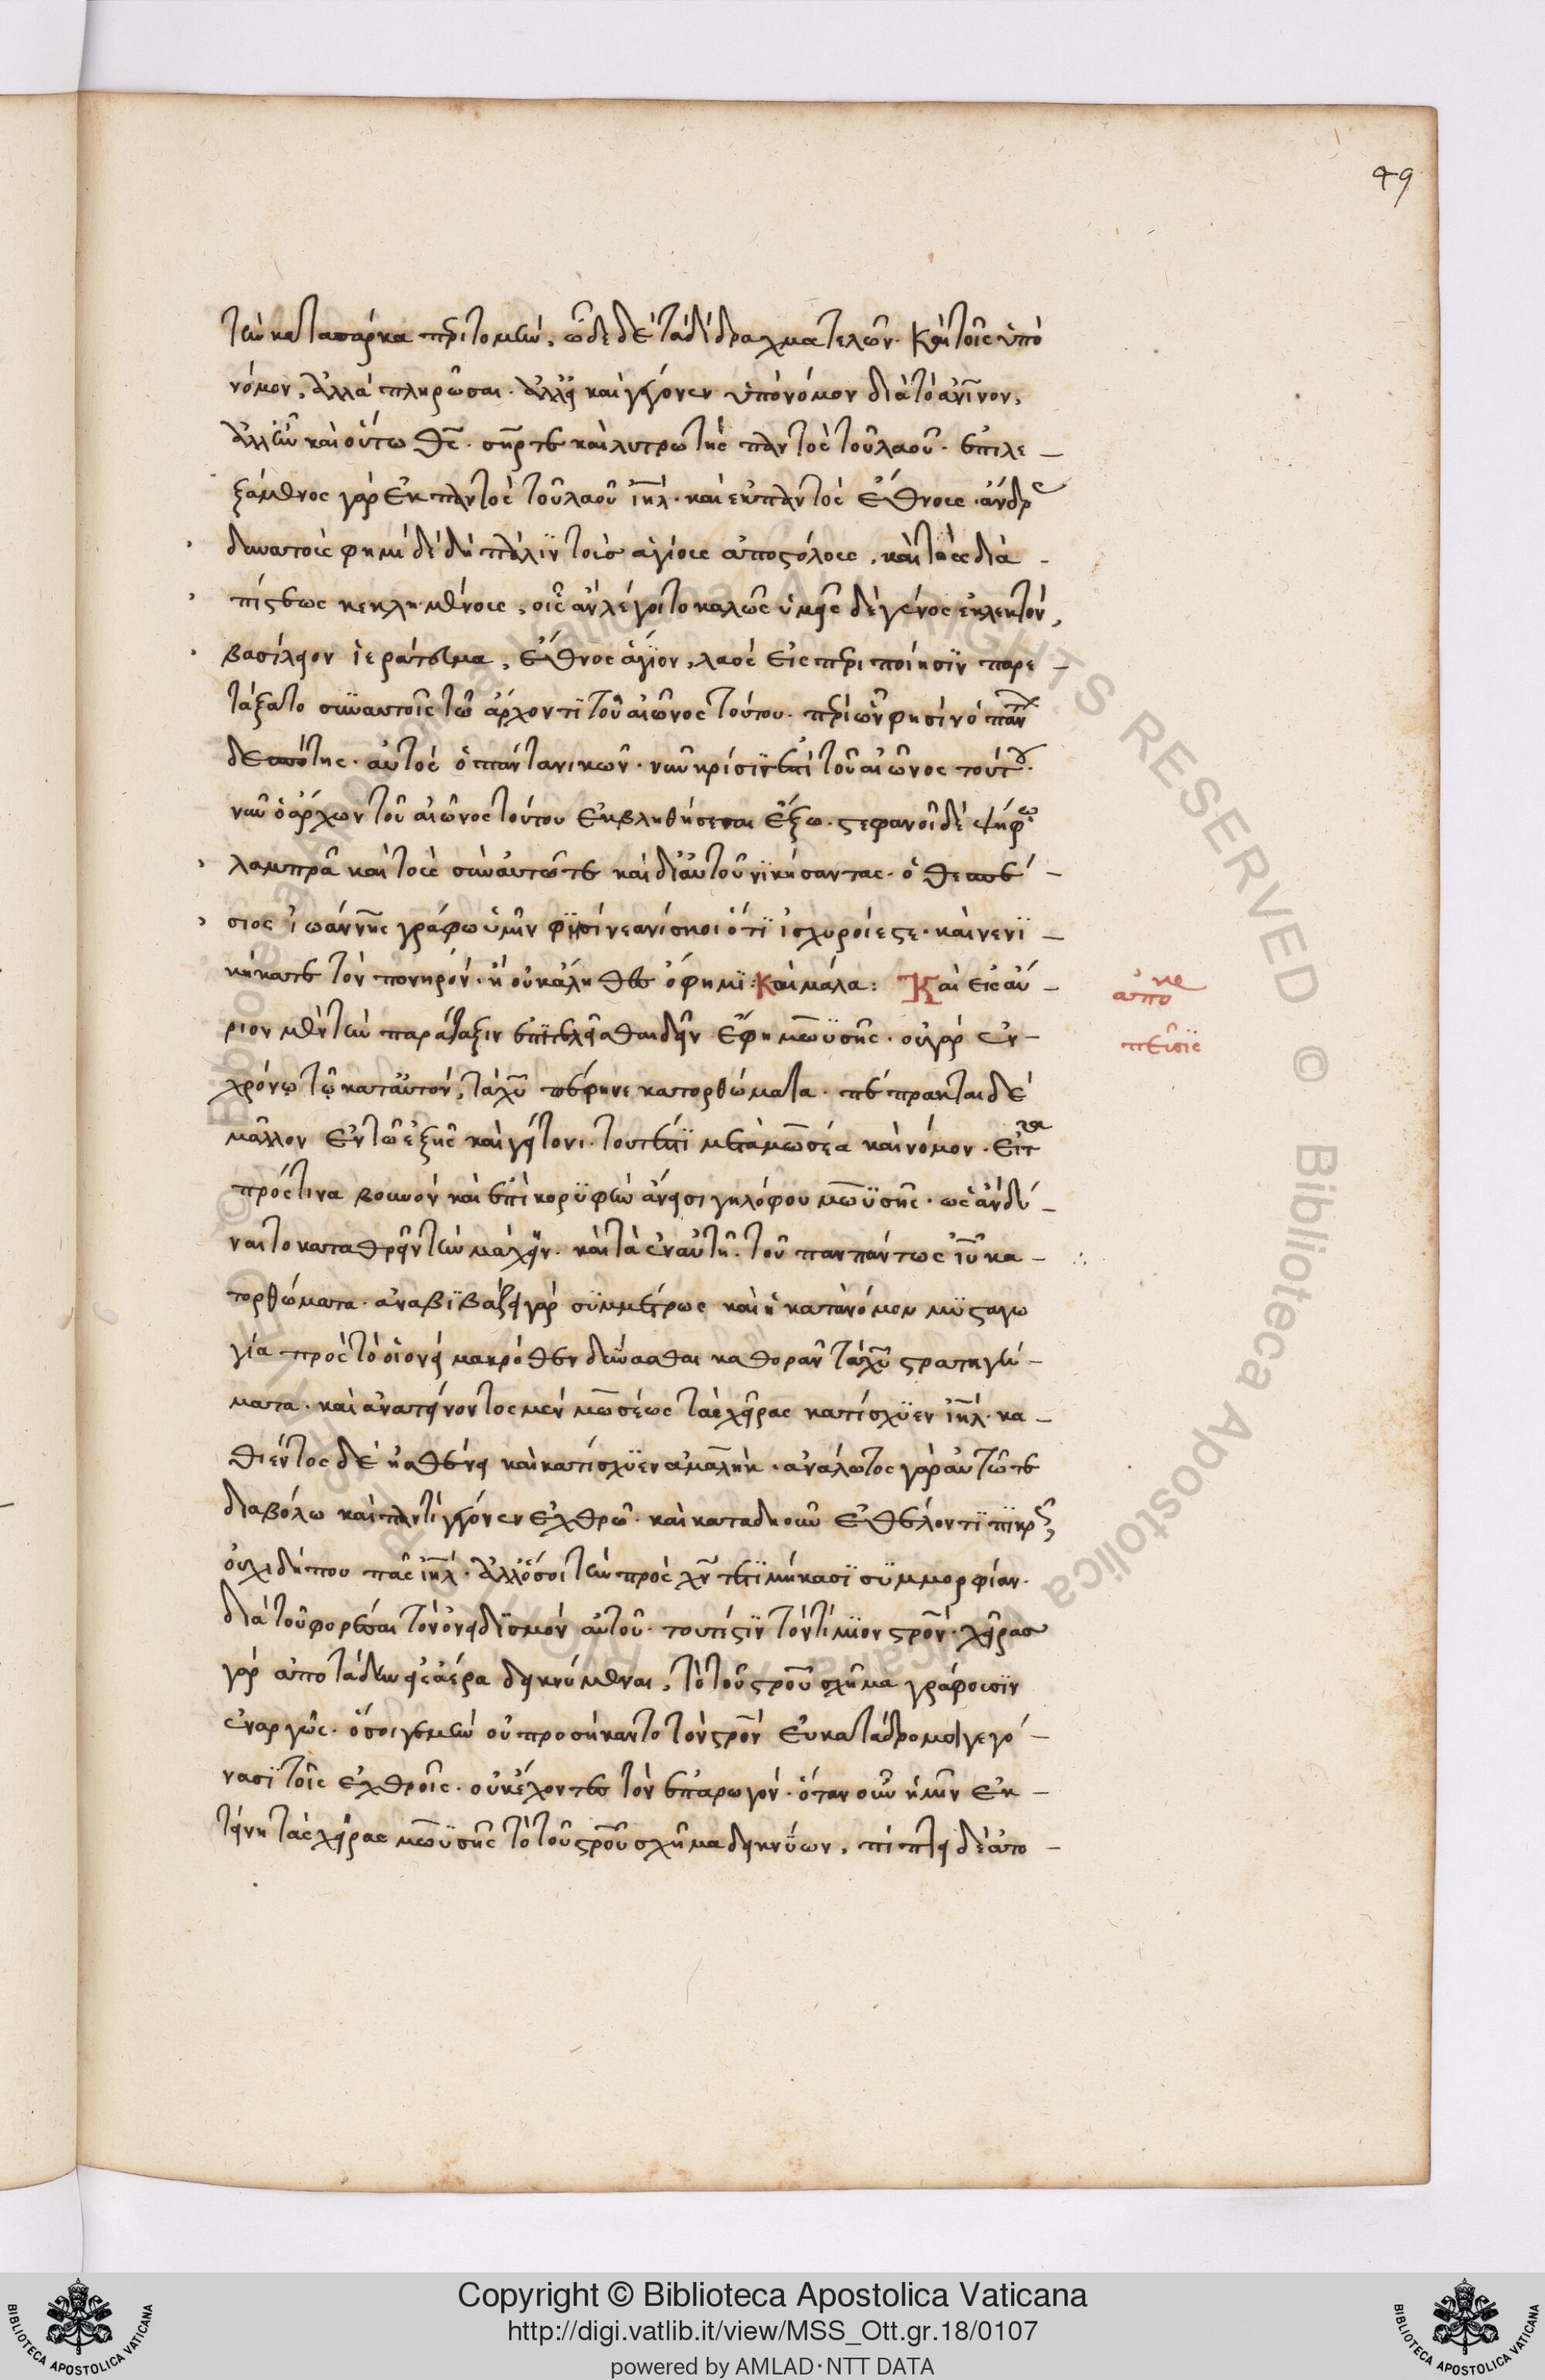 49
τὴν κατὰ σάρκα περιτομὴν, ὧδε δὲ τὰ δίδραχμα τελῶν. καὶ τοῖς ὑπὸ
νόμον, ἀλλὰ πληρῶσαι. ἀλλ' εἰ καὶ γέγονεν ὑπὸ νόμον διὰ τὸ ἀνῖνον,
ἀλλ' ἦν καὶ οὕτω θς. σηρ τε καὶ λυτρωτὴς παντὸς τοῦ λαοῦ. ἐπιλε –
ξάμενος γὰρ ἐκ παντὸς τοῦ λαοῦ ιηλ. καὶ ἐκ παντὸς ἔθνους ἄνδρ
δυνατοὺς φημὶ δὲ δὴ πάλιν τοὺς ἁγίους ἀποστόλους, καὶ τοὺς διὰ –
πίστεως κεκλημένους, οἷς ἂν λέγοιτο καλῶς ὑμεῖς δὲ γένος ἐκλεκτὸν,
βασίλειον ἱεράτευμα, ἔθνος ἅγιον, λαὸς εἰς περιποίησιν παρε –
τάξατο σὺν αὐτοῖς τῶ ἄρχοντι τοῦ αἰῶνος τούτου. περὶ ὧν φησὶν ὁ πάντ
δεσπότης. αὐτὸς ὁ πάντα νικῶν. νῦν κρίσιν ἐστὶ τοῦ αἰῶνος τούτου.
νῦν ὁ ἄρχων τοῦ αἰῶνος τούτου ἐκβληθήσεται ἔξω. στεφανοῖ δὲ ψήφω
λαμπρᾶ καὶ τοὺς σὺν αὐτῶ τε καὶ δι' αὐτοῦ νικήσαντας. ὁ θεσπέ –
σιος ἰωάννης γράφω ὑμῖν φησὶ νεανίσκοι ὅτι ἰσχυροί ἐστε. καὶ νενι –
κήκατε τὸν πονηρόν. ἢ οὐκ ἀληθὲς ὅ φημι: Καὶ μάλα: Καὶ εἰς αὔ –
ριον μὲν τὴν παράταξιν ἐπιτελεῖσθαι δεῖν ἔφη μωϋσῆς. οὐ γὰρ ἐν –
χρόνω τῷ κατ' αὐτὸν, τὰ χυ πέφηνε κατορθώματα. πέπρακται δὲ
μᾶλλον ἐν τῶ ἑξῆς καὶ γείτονι. τουτέστι μετὰ μωσέα καὶ νόμον. εἶτα
πρός τινα βουνὸν καὶ ἐπὶ κορυφὴν ἄνεισι γηλόφου μωϋσῆς. ὡς ἂν δύ –
ναιτο καταθρεῖν τὴν μάχην. καὶ τὰ ἐν αὐτῇ. τοῦ πανπάντως ιυ κα –
τορθώματα. ἀναβιβάζει γὰρ συμμέτρως καὶ ἡ κατὰ νόμον μυσταγω
γία πρὸς τὸ οἱονεὶ μακρόθεν δύνασθαι καθορᾶν τὰ χυ στρατηγή –
ματα. καὶ ἀνατείνοντος μὲν μωσέως τὰς χεῖρας κατίσχυεν ιηλ. κα –
θιέντος δὲ ἠσθένει καὶ κατίσχυεν ἀμαλὴκ. ἀνάλωτος γὰρ αὐτῶ τε
διαβόλω καὶ παντὶ γέγονεν ἐχθρῶ. καὶ καταδηοῦν ἐθέλοντι πικρῶς
οὐχὶ δήπου πᾶς ιηλ. ἀλλ' ὅσοι τὴν πρὸς χν τετιμήκασι συμμορφίαν.
διὰ τοῦ φορέσαι τὸν ὀνειδισμὸν αὐτοῦ. τουτέστιν τὸν τίμιον στρον. χεῖρας
γὰρ ἀποτάδην εἰς ἀέρα δεικνύμεναι, τὸ τοῦ στρου σχῆμα γράφουσιν
ἐναργῶς. ὅσοι γε μὴν οὐ προσήκαντο τὸν στρον εὐκατάδρομοι γεγό –
νασι τοῖς ἐχθροῖς. οὐκ ἔχοντες τὸν ἐπαρωγόν. ὅταν οὖν ἡμῖν ἐκ –
τείνῃ τὰς χεῖρας μωϋσῆς τὸ τοῦ στρου σχῆμα δεικνύων, πίπτει δὲ ἀπο –
Copyright © Biblioteca Apostolica Vaticana
http://digi.vatlib.it/view/MSS_Ott.gr.18/0107
powered by AMLAD·NTT DATA